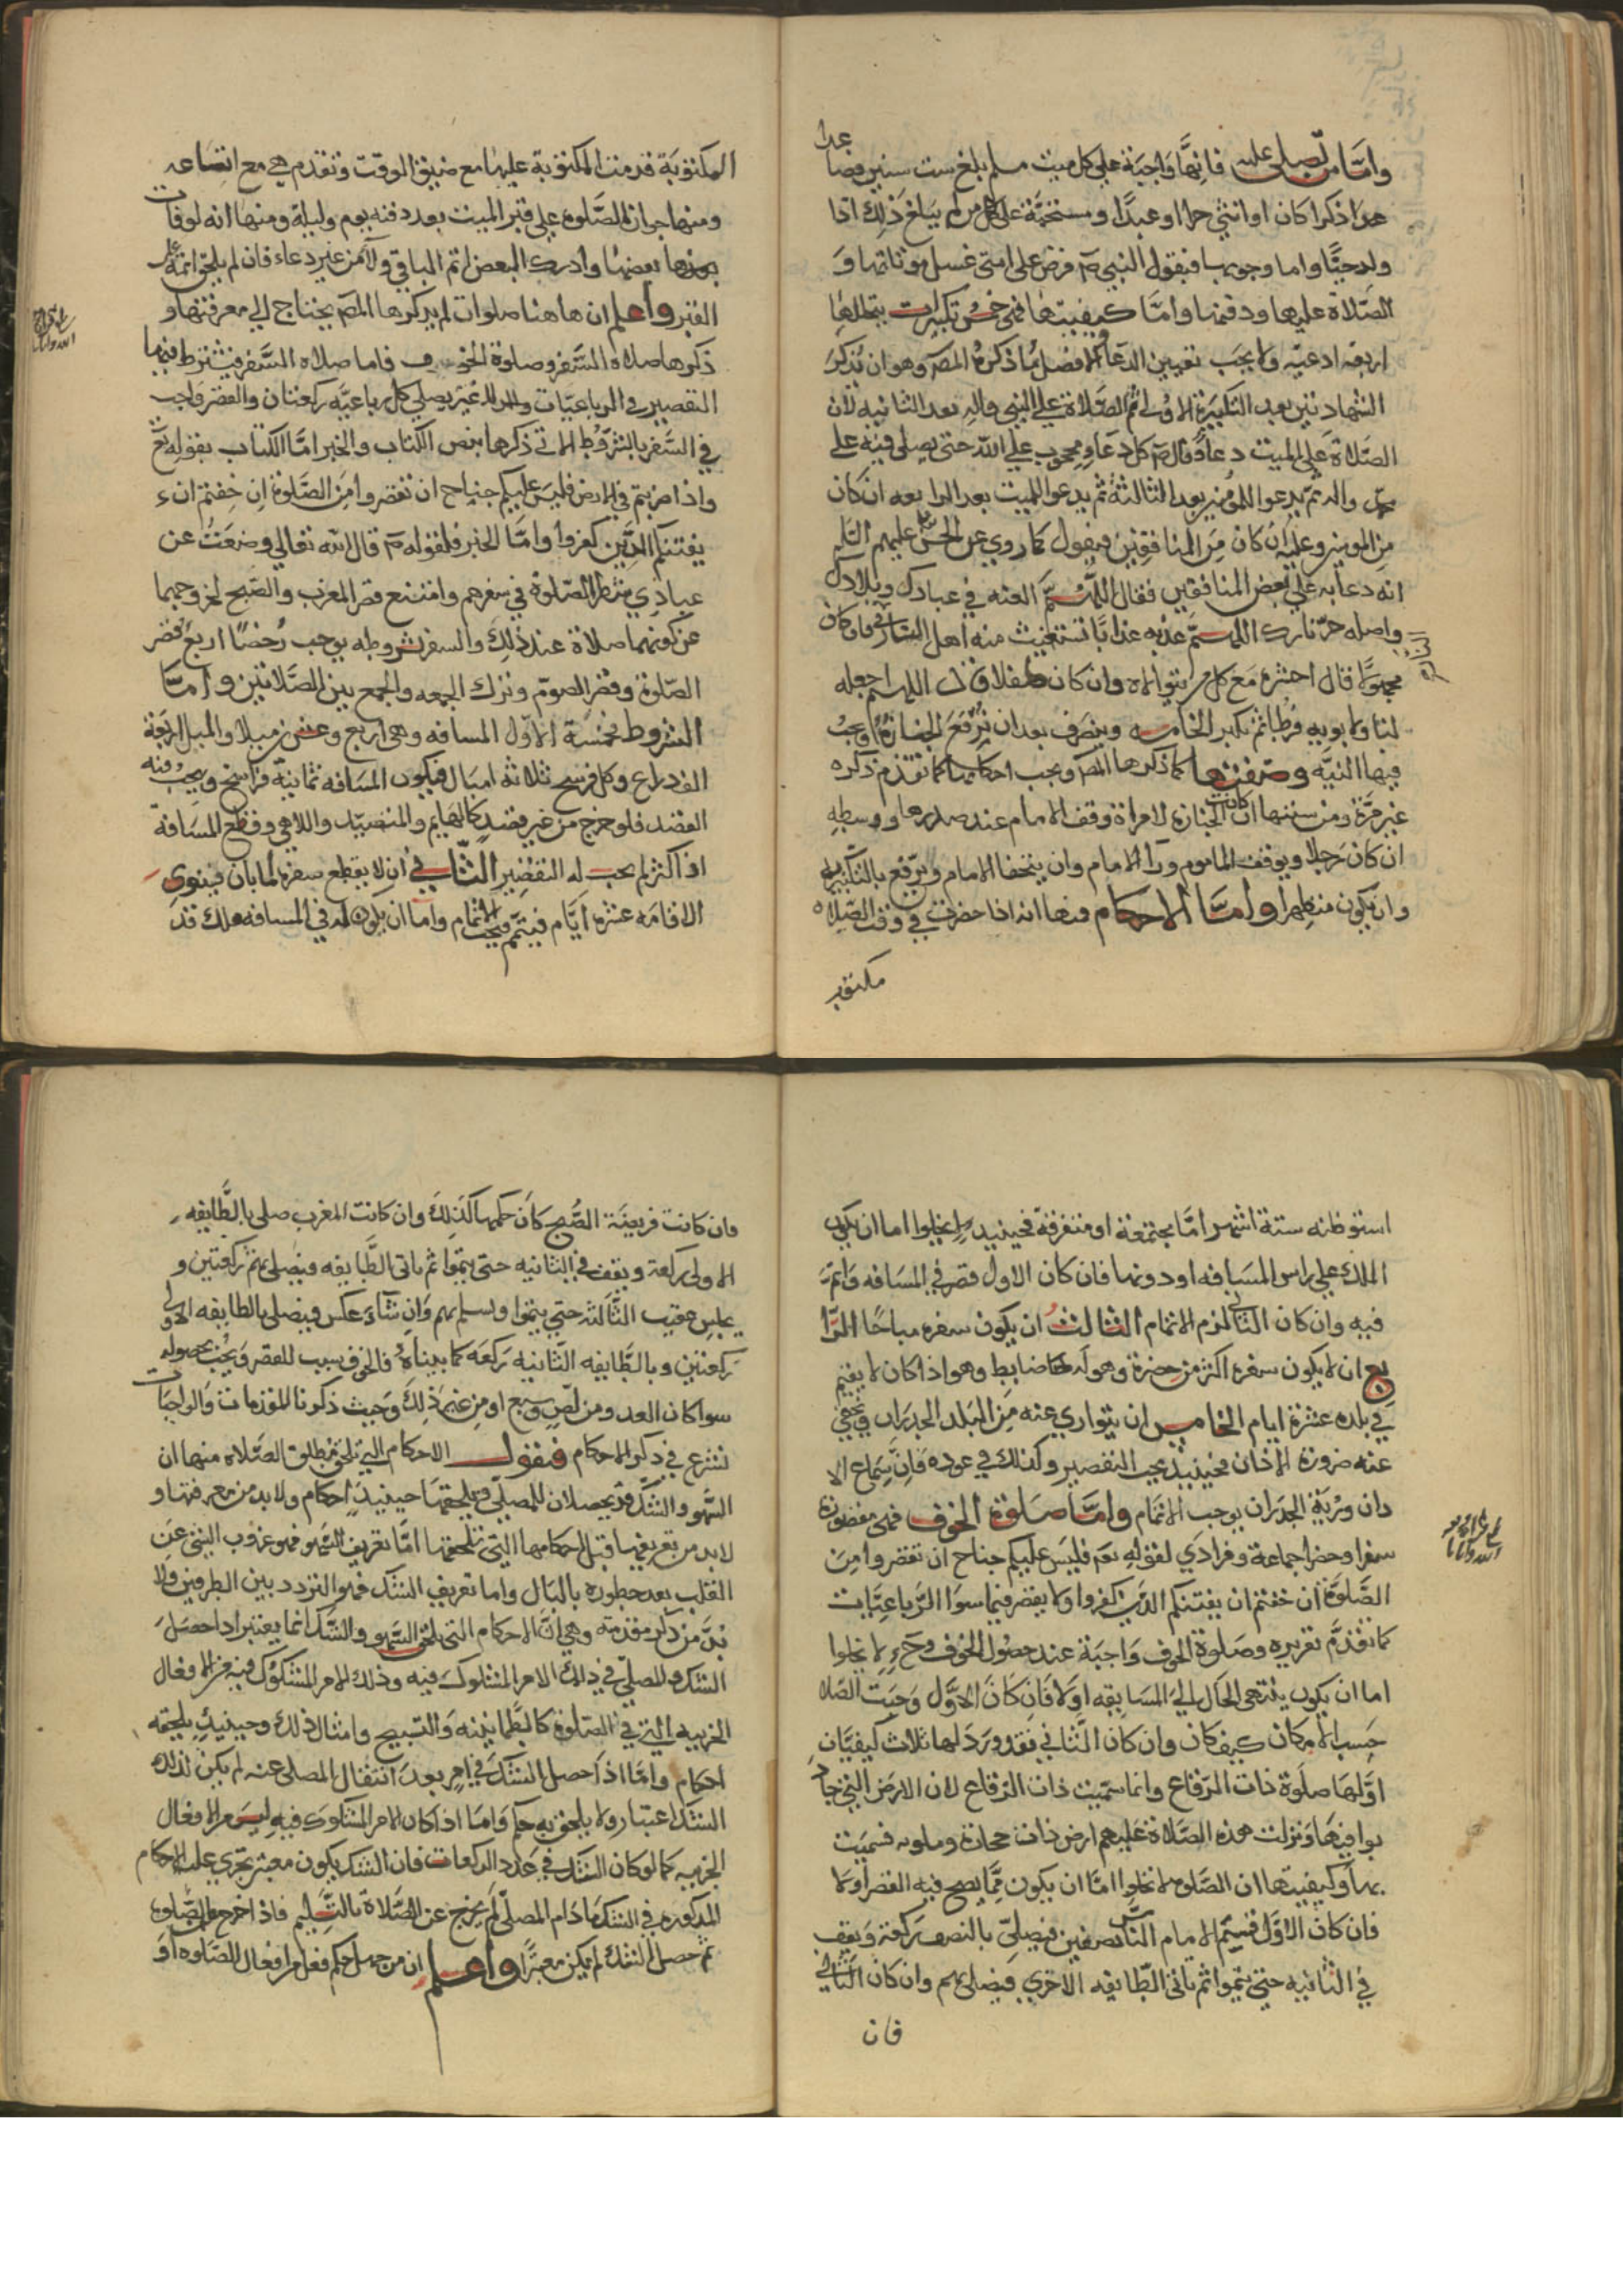 وامّا من يصلى عليه فانها واجبة على كل ميت مسلم بلغ ست سنين فصا
عدا
ذكرا كان او انثى حرا او عبدًا ومستحبّة على من لم يبلغ ذلك اذا
ولد حيًّا واما وجوبها فبقول النبي ص فرض على امتى غسل موتاتها و
الصّلاة عليها ودفنها وامّا كيفيتها فهى خمس تكبيرات يتخللها
اربعة ادعيه ولا يجب تعيين الدعا والافضل ما ذكره المص وهو ان يذكر
الشهادتين بعد التكبيرة الاولى ثم الصّلاة على النبي واله بعد الثانيه لأن
الصّلاة على الميت دعاء وقال ص كل دعاء محجوب على الله حتى يصلى فيه على
محمّد واله ثم يدعوا للمؤمنين بعد الثالثة ثم يدعوا للميت بعد الرابعه ان كان
من المومنين وعليه ان كان من المنافقين فيقول كما روي عن الحسين عليهم السلم
انه دعا به على بعض المنافقين فقال اللهمّ العنه في عبادك وبلادك
واصله حرّ نارك اللهمّ عذبه عذابًا تستغيث منه اهل النار فان كان
مجهولًا قال احشره مع كل من يتولاه وان كان طفلا قال اللهم اجعله
لنا ولابويه فرطا ثم يكبر الخامسه وينصرف بعد ان ترفع الجنازة ويجب
فيها النيّه وصفتها كما ذكرها المص ويجب احكامها كما تقدم ذكره
غير مرّة ومن سننها ان كانت الجنازه لامراة وقف الامام عند صدرها ووسطه
ان كان رجلا ويوقف الماموم ورآ الامام وان يتحفا الامام ويرفع بالتكبير يديه
وان يكون متطهرا وامّا الاحكام فمنها انه اذا حضرت في وقت الصّلاه
مكتوبه
المكتوبة قدمت المكتوبة عليها مع ضيق الوقت وتقدم هي مع اتساعه
ومنها جواز الصّلوه على قبر الميت بعد دفنه يوم وليلة ومنها انه لو فات
بعضها وادرك البعض اتم الباقي ولاء من غير دعاء فان لم يلحق اتمه على
القبر واعلم ان هاهنا صلوات لم يذكرها المص يحتاج الى معرفتها و
ذكرها صلاة السّفر وصلوة الخوف فاما صلاه السّفر فيشترط فيها
التقصير في الرباعيّات ولا غير يصلى كل رباعيّه ركعتان والقصر واجب
في السّفر بالشروط الاتى ذكرها بنص الكتاب والخبر امّا الكتاب بقوله تع
واذا ضربتم في الارض فليس عليكم جناح ان تقصروا من الصّلوة ان خفتم ان
يفتنكم الذين كفروا وامّا الخبر فلقوله ص قال الله تعالى وضعت عن
عبادي شطر الصّلوة في سفرهم وامتنع قصر المغرب والصّبح لخروجهما
عن كونهما صلاة عند ذلك والسفر بشروطه يوجب رُخصًا اربع قصر
الصّلوة وقصر الصوم وترك الجمعه والجمع بين الصّلاتين وامّا
الشروط فخمسة الاول المسافه وهى اربع وعشرين ميلا والميل اربعة
الف ذراع وكل فرسخ ثلاثة اميال فيكون المسافه ثمانية فراسخ ويجب فيه
القصد فلو خرج من غير قصد كالهايم والمتصيّد واللاهي وقطع المسافة
او اكثر لم يجب له التقصير الثاني أن لا يقطع سفره امّا بان ينوى
الاقامه عشرة ايام فيتمّ فيجب الاتمام واما ان يكون له في المسافه ملك قد
استوطنه ستة اشهر امّا مجتمعة او متفرقة فحينيذ لا يخلوا اما ان يكون
الملك على راس المسافه او دونها فان كان الاول قصر في المسافه واتمّ
فيه وان كان الثاني لزم الاتمام الثالث ان يكون سفره مباحًا الرّا
بع ان لا يكون سفره اكثر من حضره وهو له ضابط وهو اذا كان لا يقيم
في بلده عشرة ايام الخامس ان يتوارى عنه من البلد الجدران ويخفى
عنه ضرورة الاذان فحينيذ يجب التقصير وكذلك في عوده فان سماع الا
ذان ورؤية الجدران يوجب الاتمام وامّا صلوة الخوف فهى مقصورة
سفرا وحضرا جماعة وفرادي لقوله تعه فليس عليكم جناح ان تقصروا من
الصّلوة ان خفتم ان يفتنكم الذين كفروا ولا يقصر فيما سوا الرباعيّات
كما تقدم تقريره وصلوة الخوف واجبة عند حصول الخوف وحينيذ لا يخلوا
اما ان يكون ينتهى الحال الى المسايفه او لا فان كان الاوّل وجبت الصّلاة
حسب الامكان كيف كان وان كان الثاني فقد ورد لها ثلاث كيفيّات
اوّلها صلوة ذات الرّقاع وانما سمّيت ذات الرّقاع لان الارض التي جا
بوا فيها ونزلت هذه الصّلاة عليهم ارض ذات حجارة وملونه فسميت
بها وكيفيتها ان الصّلوه لا تخلوا امّا ان يكون ممّا يصح فيه القصر اولا
فان كان الاوّل قسيّم الامام الناس نصفين فيصلّي بالنصف ركعة ويقف
في الثانيه حتى يتموا ثم تاتى الطّايفه الاخرى فيصلى بهم وان كان الثانى
فان
فان كانت فريضة الصّبح كان حكمها كذلك وان كانت المغرب صلى بالطّايفه
الاولى ركعة ويقف في الثانيه حتى يتموا ثم تاتى الطّايفه فيصلى بهم ركعتين و
يجلس عقيب الثّالثة حتى يتموا ويسلم بهم وان شاء عكس فيصلى بالطايفه الاولى
ركعتين وبالطّايفه الثّانيه ركعه كما بيناه فالخوف سبب للقصر ويجب بحصوله
سوا كان العدو من لصّ وسبع او من غير ذلك وحيث ذكرنا المقدمات والواجبات
نشرع في ذكر الاحكام فنقول الاحكام التي تلحق مطلق الصّلاة منها ان
السّهو والشّك قد يحصلان للمصلّي ويلحقها حينيذ احكام ولا بد من معرفتها و
لا بد من تعريفها قبل احكامها التي تلحقها امّا تعريف السّهو فهو عزوب الشئ عن
القلب بعد خطوره بالبال واما تعريف الشك فهو التردد بين الطرفين ولا
بدّ من ذكر مقدمة وهي انّ الاحكام التي تلحق السّهو والشّك انما يعتبر اذا حصل
الشك والمصلّي في ذلك الامر المشكوك فيه وذلك الامر المشكوك فيه من الافعال
الجزييه التي في الصّلوة كالطمانينه والتسبيح وامثال ذلك وحينيذ يلحقه
احكام وامّا اذا حصل الشّك في امر بعد انتقال المصلى عنه لم يكن لذلك
الشّك اعتبار ولا يلحق به حكم وامّا اذا كان الامر المشكوك فيه ليس من الافعال
الجزييه كما لو كان الشّك في عدد الركعات فان الشك يكون معتبر تجري عليه الاحكام
المذكوره في الشك ما دام المصلّي لم يخرج عن الصّلاة بالتّسليم فاذا خرج من الصّلوه
ثم حصل الشك لم يكن معتبرًا واعلم ان من جهل حكم فعل من افعال الصّلوه او